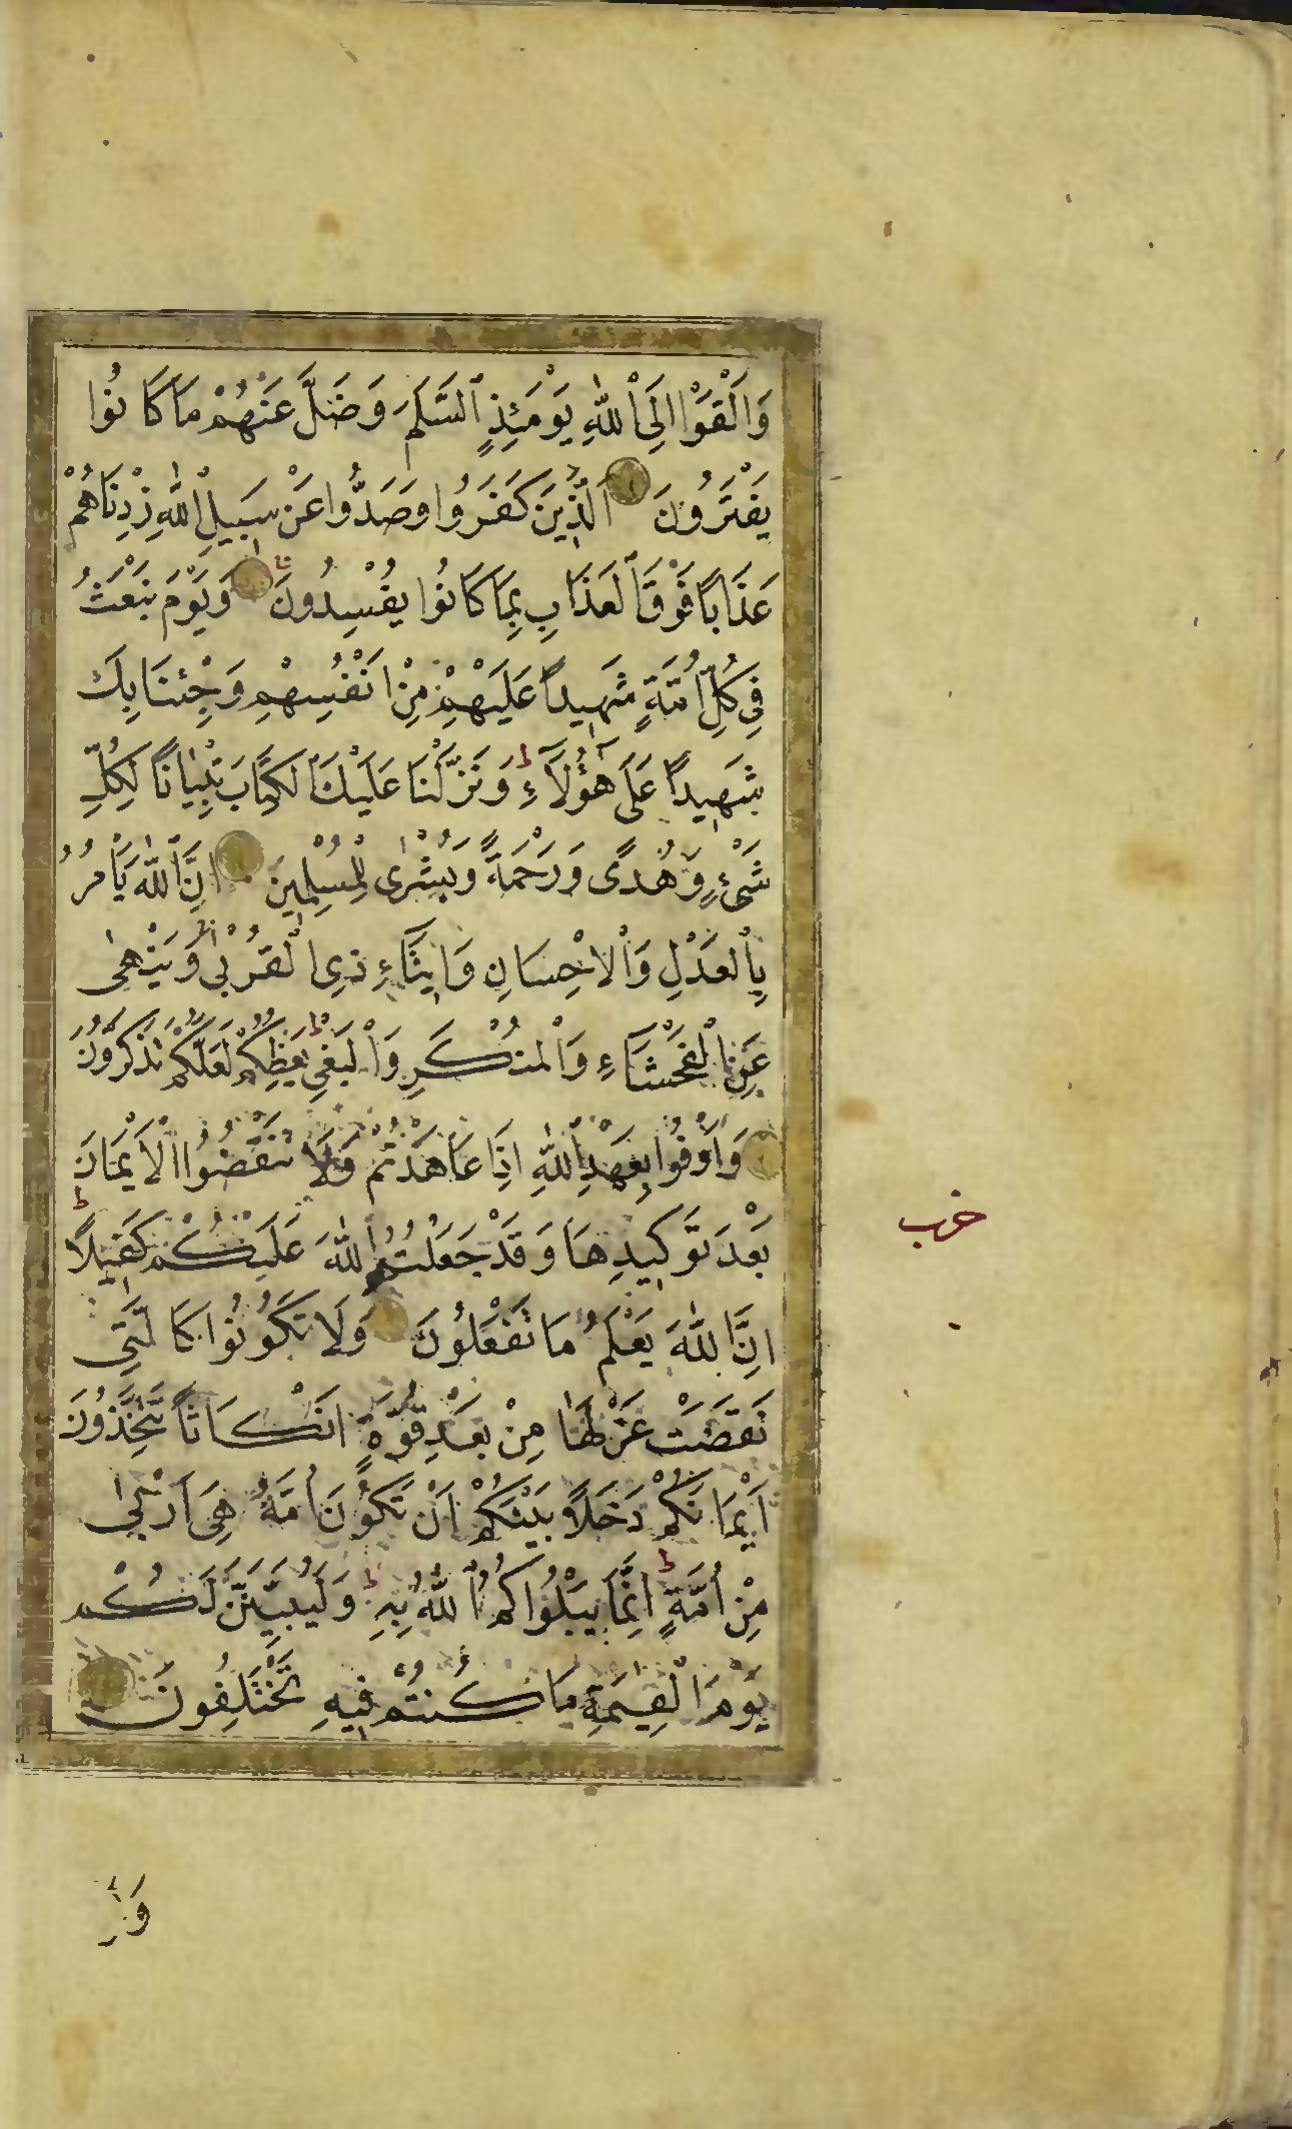 وَاَلْقَوْا اِلَى اللّٰهِ يَوْمَئِذٍ السَّلَمَ وَضَلَّ عَنْهُمْ مَا كَانُوا
يَفْتَرُونَ اَلَّذِينَ كَفَرُوا وَصَدُّوا عَنْ سَبِيلِ اللّٰهِ زِدْنَاهُمْ
عَذَابًا فَوْقَ الْعَذَابِ بِمَا كَانُوا يُفْسِدُونَ وَيَوْمَ نَبْعَثُ
فِي كُلِّ اُمَّةٍ شَهِيدًا عَلَيْهِمْ مِنْ اَنْفُسِهِمْ وَجِئْنَا بِكَ
شَهِيدًا عَلَى هٰؤُلَاۤءِ ط وَنَزَّلْنَا عَلَيْكَ الْكِتَابَ تِبْيَانًا لِكُلِّ
شَيْءٍ وَهُدًى وَرَحْمَةً وَبُشْرٰى لِلْمُسْلِمِينَ اِنَّ اللّٰهَ يَأْمُرُ
بِالْعَدْلِ وَالْاِحْسَانِ وَاِيتَاۤءِ ذِي الْقُرْبٰى وَيَنْهٰى
عَنِ الْفَحْشَاۤءِ وَالْمُنْكَرِ وَالْبَغْيِ ط يَعِظُكُمْ لَعَلَّكُمْ تَذَكَّرُونَ
وَاَوْفُوا بِعَهْدِ اللّٰهِ اِذَا عَاهَدْتُمْ وَلَا تَنْقُضُوا الْاَيْمَانَ
بَعْدَ تَوْكِيدِهَا وَقَدْ جَعَلْتُمُ اللّٰهَ عَلَيْكُمْ كَفِيلًا ط
اِنَّ اللّٰهَ يَعْلَمُ مَا تَفْعَلُونَ وَلَا تَكُونُوا كَالَّتِي
نَقَضَتْ غَزْلَهَا مِنْ بَعْدِ قُوَّةٍ اَنْكَاثًا تَتَّخِذُونَ
اَيْمَانَكُمْ دَخَلًا بَيْنَكُمْ اَنْ تَكُونَ اُمَّةٌ هِيَ اَرْبٰى
مِنْ اُمَّةٍ ط اِنَّمَا يَبْلُوَاكُمُ اللّٰهُ بِهِ ط وَلَيُبَيِّنَنَّ لَكُمْ
يَوْمَ الْقِيٰمَةِ مَا كُنْتُمْ فِيهِ تَخْتَلِفُونَ
حزب